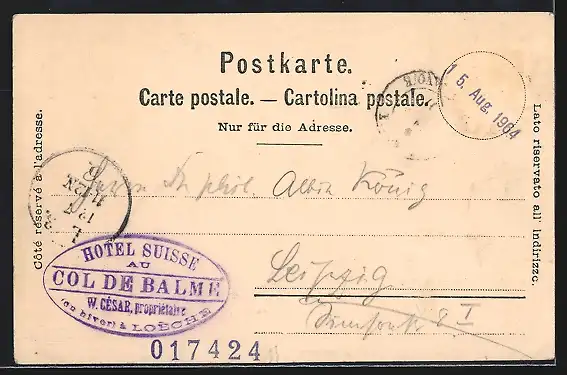 Postkarte.
Carte postale. — Cartolina postale.
Nur für die Adresse.
Côté réservé à l'adresse.
Lato riservato all' Indirizzo.
15. Aug. 1904
Herrn Dr phil. Albin König
Leipzig
I
HOTEL SUISSE
AU
COL DE BALME
W. CÉSAR, propriétaire
(en hiver) à LOÈCHE
017424